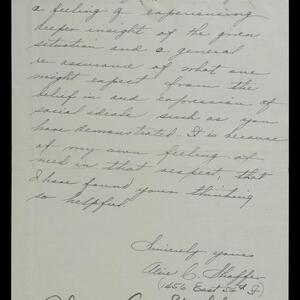 a feeling of experiencing
deeper insight of the given
situation and a general
re-assurance of what one
might expect from the
belief in and expression of
social ideals such as you
have demonstrated. It is because
of my own feeling of
need in that respect, that
I have found your thinking
so helpful
Sincerely yours
C. Shaffer
(1456 East 52nd St.)